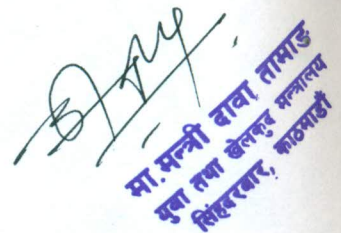 मा. मन्त्री दावा तामाङ
युवा तथा खेलकुद मन्त्रालय
सिंहदरबार, काठमाडौं